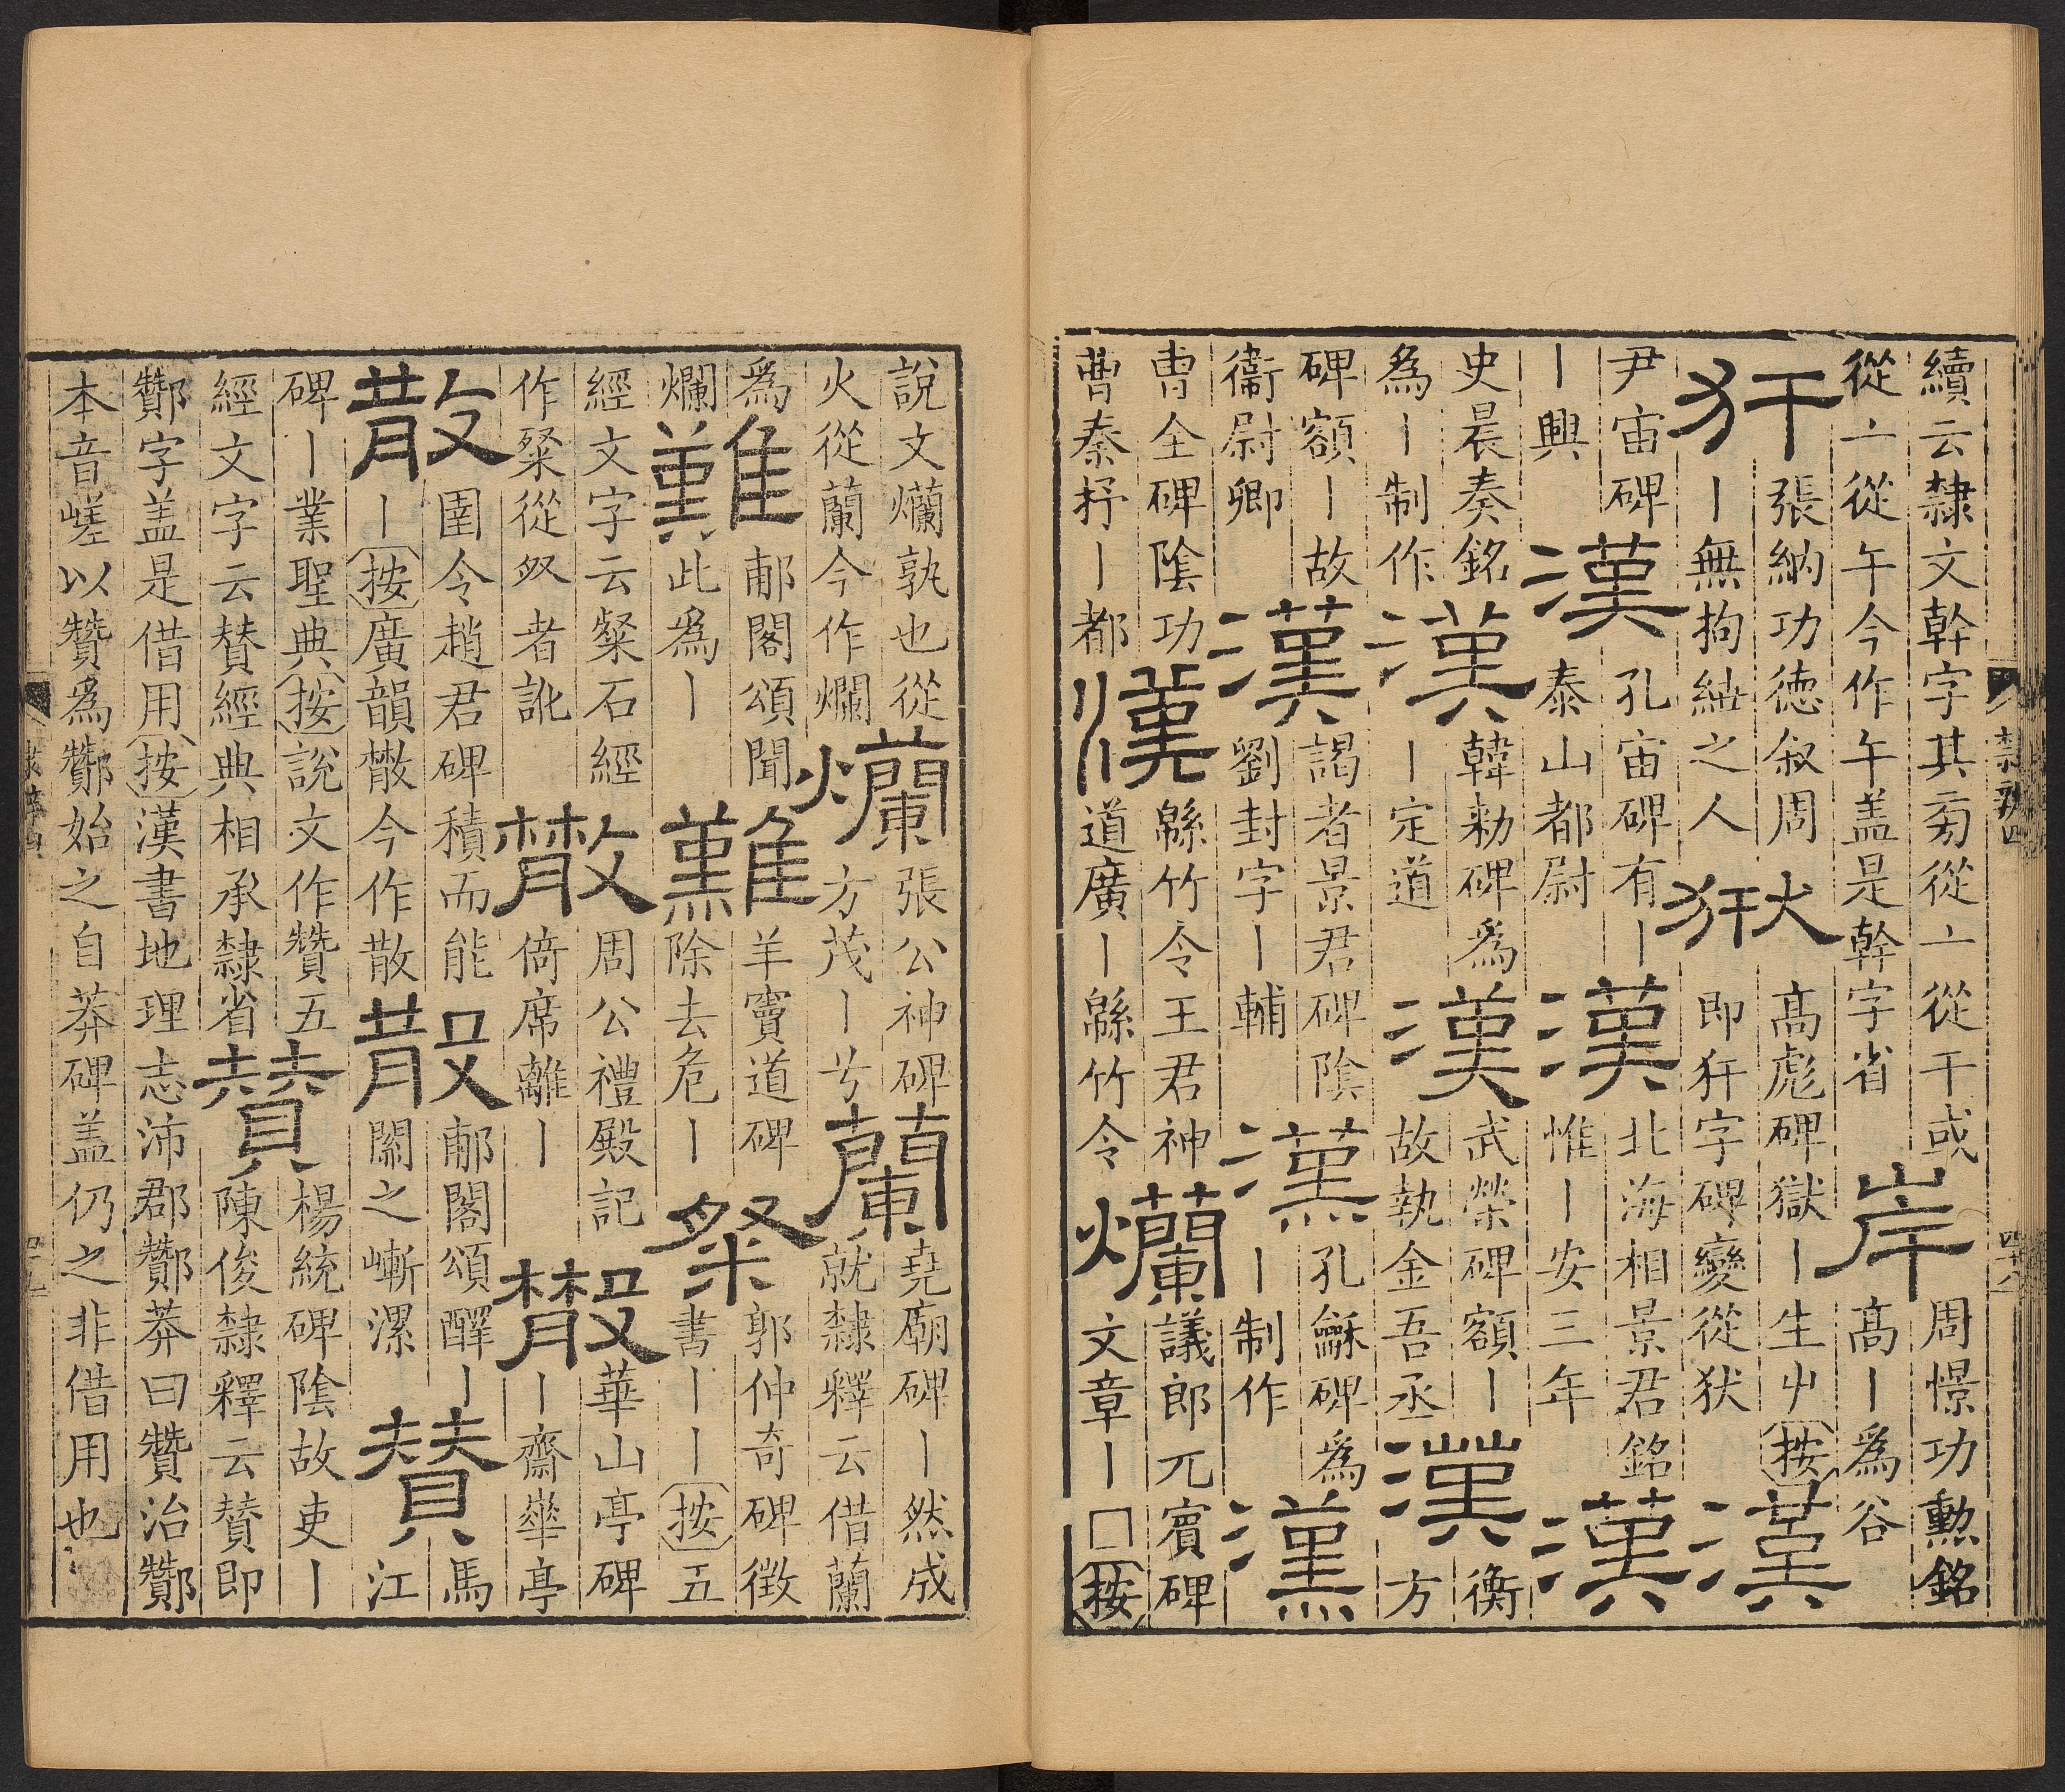 續云隸文幹字其㫄從亠從干或
從亠從午今作午盖是幹字省
岸
周憬功勲銘
高丨爲谷
犴
張納功德叙周
丨無拘紲之人
㹜
高彪碑獄丨生屮按
即犴字碑變從犾
漢
尹宙碑
丨興
漢
孔宙碑有丨
泰山都尉
漢
北海相景君銘
惟丨安三年
漢
史晨奏銘
爲丨制作
漢
韓勑碑爲
丨定道
漢
武榮碑額丨
故執金吾丞
漢
衡
方
碑額丨故
衞尉卿
漢
謁者景君碑陰
劉封字丨輔
漢
孔龢碑爲
丨制作
漢
曹全碑陰功
曹秦抒丨都
漢
緜竹令王君神
道廣丨緜竹令
爛
議郎元賓碑
文章丨□按
隸辨四
四十八
說文爤孰也從
火從蘭今作爛
爛
張公神碑
方茂丨兮
蘭
堯廟碑丨然成
就隸釋云借蘭
爲
爛
難
郙閣頌聞
此爲丨
難
羊竇道碑
除去危丨
粲
郭仲奇碑徴
書丨丨按五
經文字云粲石經
作粲從㕚者訛
㪚
周公禮殿記
倚席離丨
㪚
華山亭碑
丨齋華亭
散
圉令趙君碑積而能
丨按廣韻㪚今作散
散
郙閣頌醳丨
關之嶃漯
賛
馬
江
碑丨業聖典按說文作贊五
經文字云賛經典相承隸省
賛
楊統碑陰故吏丨
陳俊隸釋云賛即
酇字盖是借用按漢書地理志沛郡酇莽曰贊治酇
本音嵯以贊爲酇始之自莽碑盖仍之非借用也